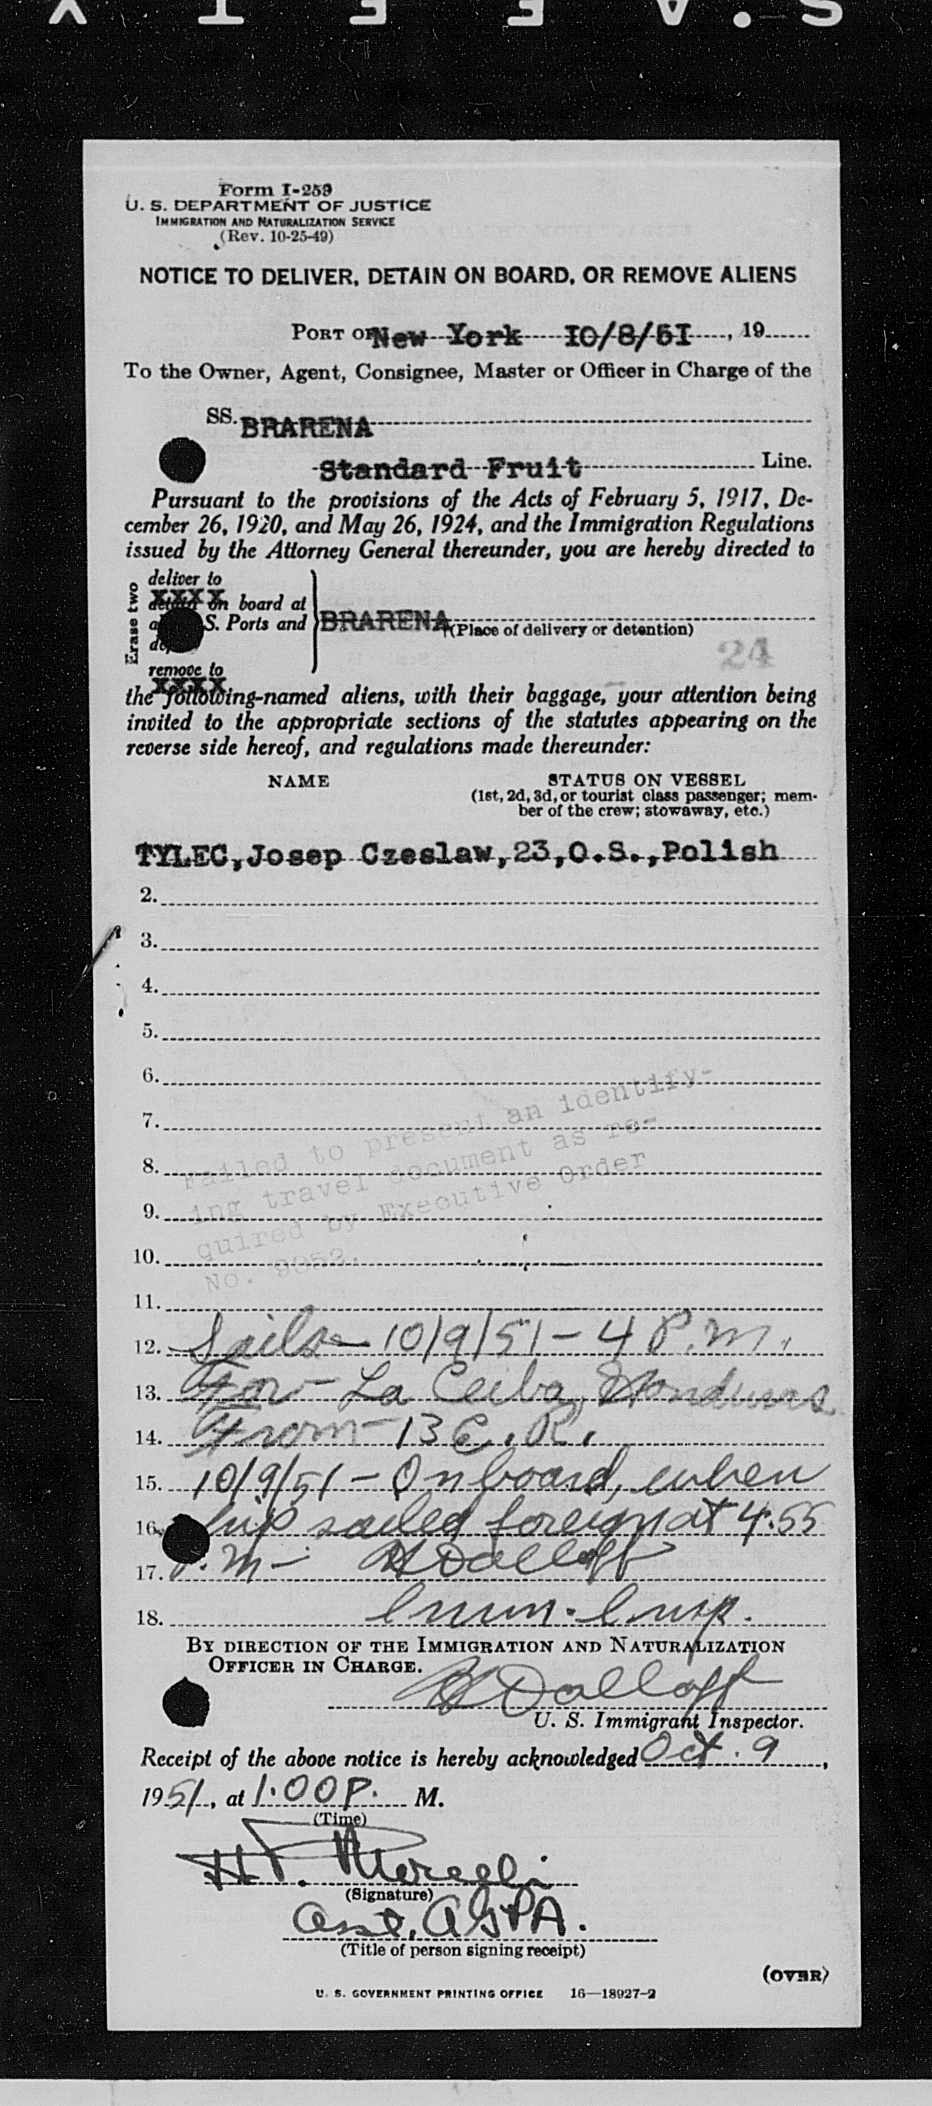 Form I-259
U. S. DEPARTMENT OF JUSTICE
IMMIGRATION AND NATURALIZATION SERVICE
(Rev. 10-25-49)
NOTICE TO DELIVER, DETAIN ON BOARD, OR REMOVE ALIENS
PORT OF New York 10/8/51, 19
To the Owner, Agent, Consignee, Master or Officer in Charge of the
SS. BRARENA
Standard Fruit Line.
Pursuant to the provisions of the Acts of February 5, 1917, De-
cember 26, 1920, and May 26, 1924, and the Immigration Regulations
issued by the Attorney General thereunder, you are hereby directed to
Erase two
deliver to
XXXX on board at
S. Ports and
BRARENA
(Place of delivery or detention)
24
remove to
XXXX
the following-named aliens, with their baggage, your attention being
invited to the appropriate sections of the statutes appearing on the
reverse side hereof, and regulations made thereunder:
NAME STATUS ON VESSEL
(1st, 2d, 3d, or tourist class passenger; mem-
ber of the crew; stowaway, etc.)
TYLEC, Josep Czeslaw, 23, O.S., Polish
2.
3.
4.
5.
6.
7.
8.
9.
10.
11.
Failed to present an identify-
ing travel document as re-
quired by Executive Order
No.
12. Sails 10/9/51 - 4 P.M.
13. For - La Ceiba, Honduras
14. From - 13 E. R.
15. 10/9/51 - On board, when
16. ship sailed foreign at 4:55
17. P.M - H Dalloff
18. Imm. Insp.
BY DIRECTION OF THE IMMIGRATION AND NATURALIZATION
OFFICER IN CHARGE.
H Dalloff
U. S. Immigrant Inspector.
Receipt of the above notice is hereby acknowledged Oct. 9,
1951, at 1:00 P. M.
(Time)
(Signature)
Asst. AGPA.
(Title of person signing receipt)
(OVER)
U. S. GOVERNMENT PRINTING OFFICE 16—18927-2